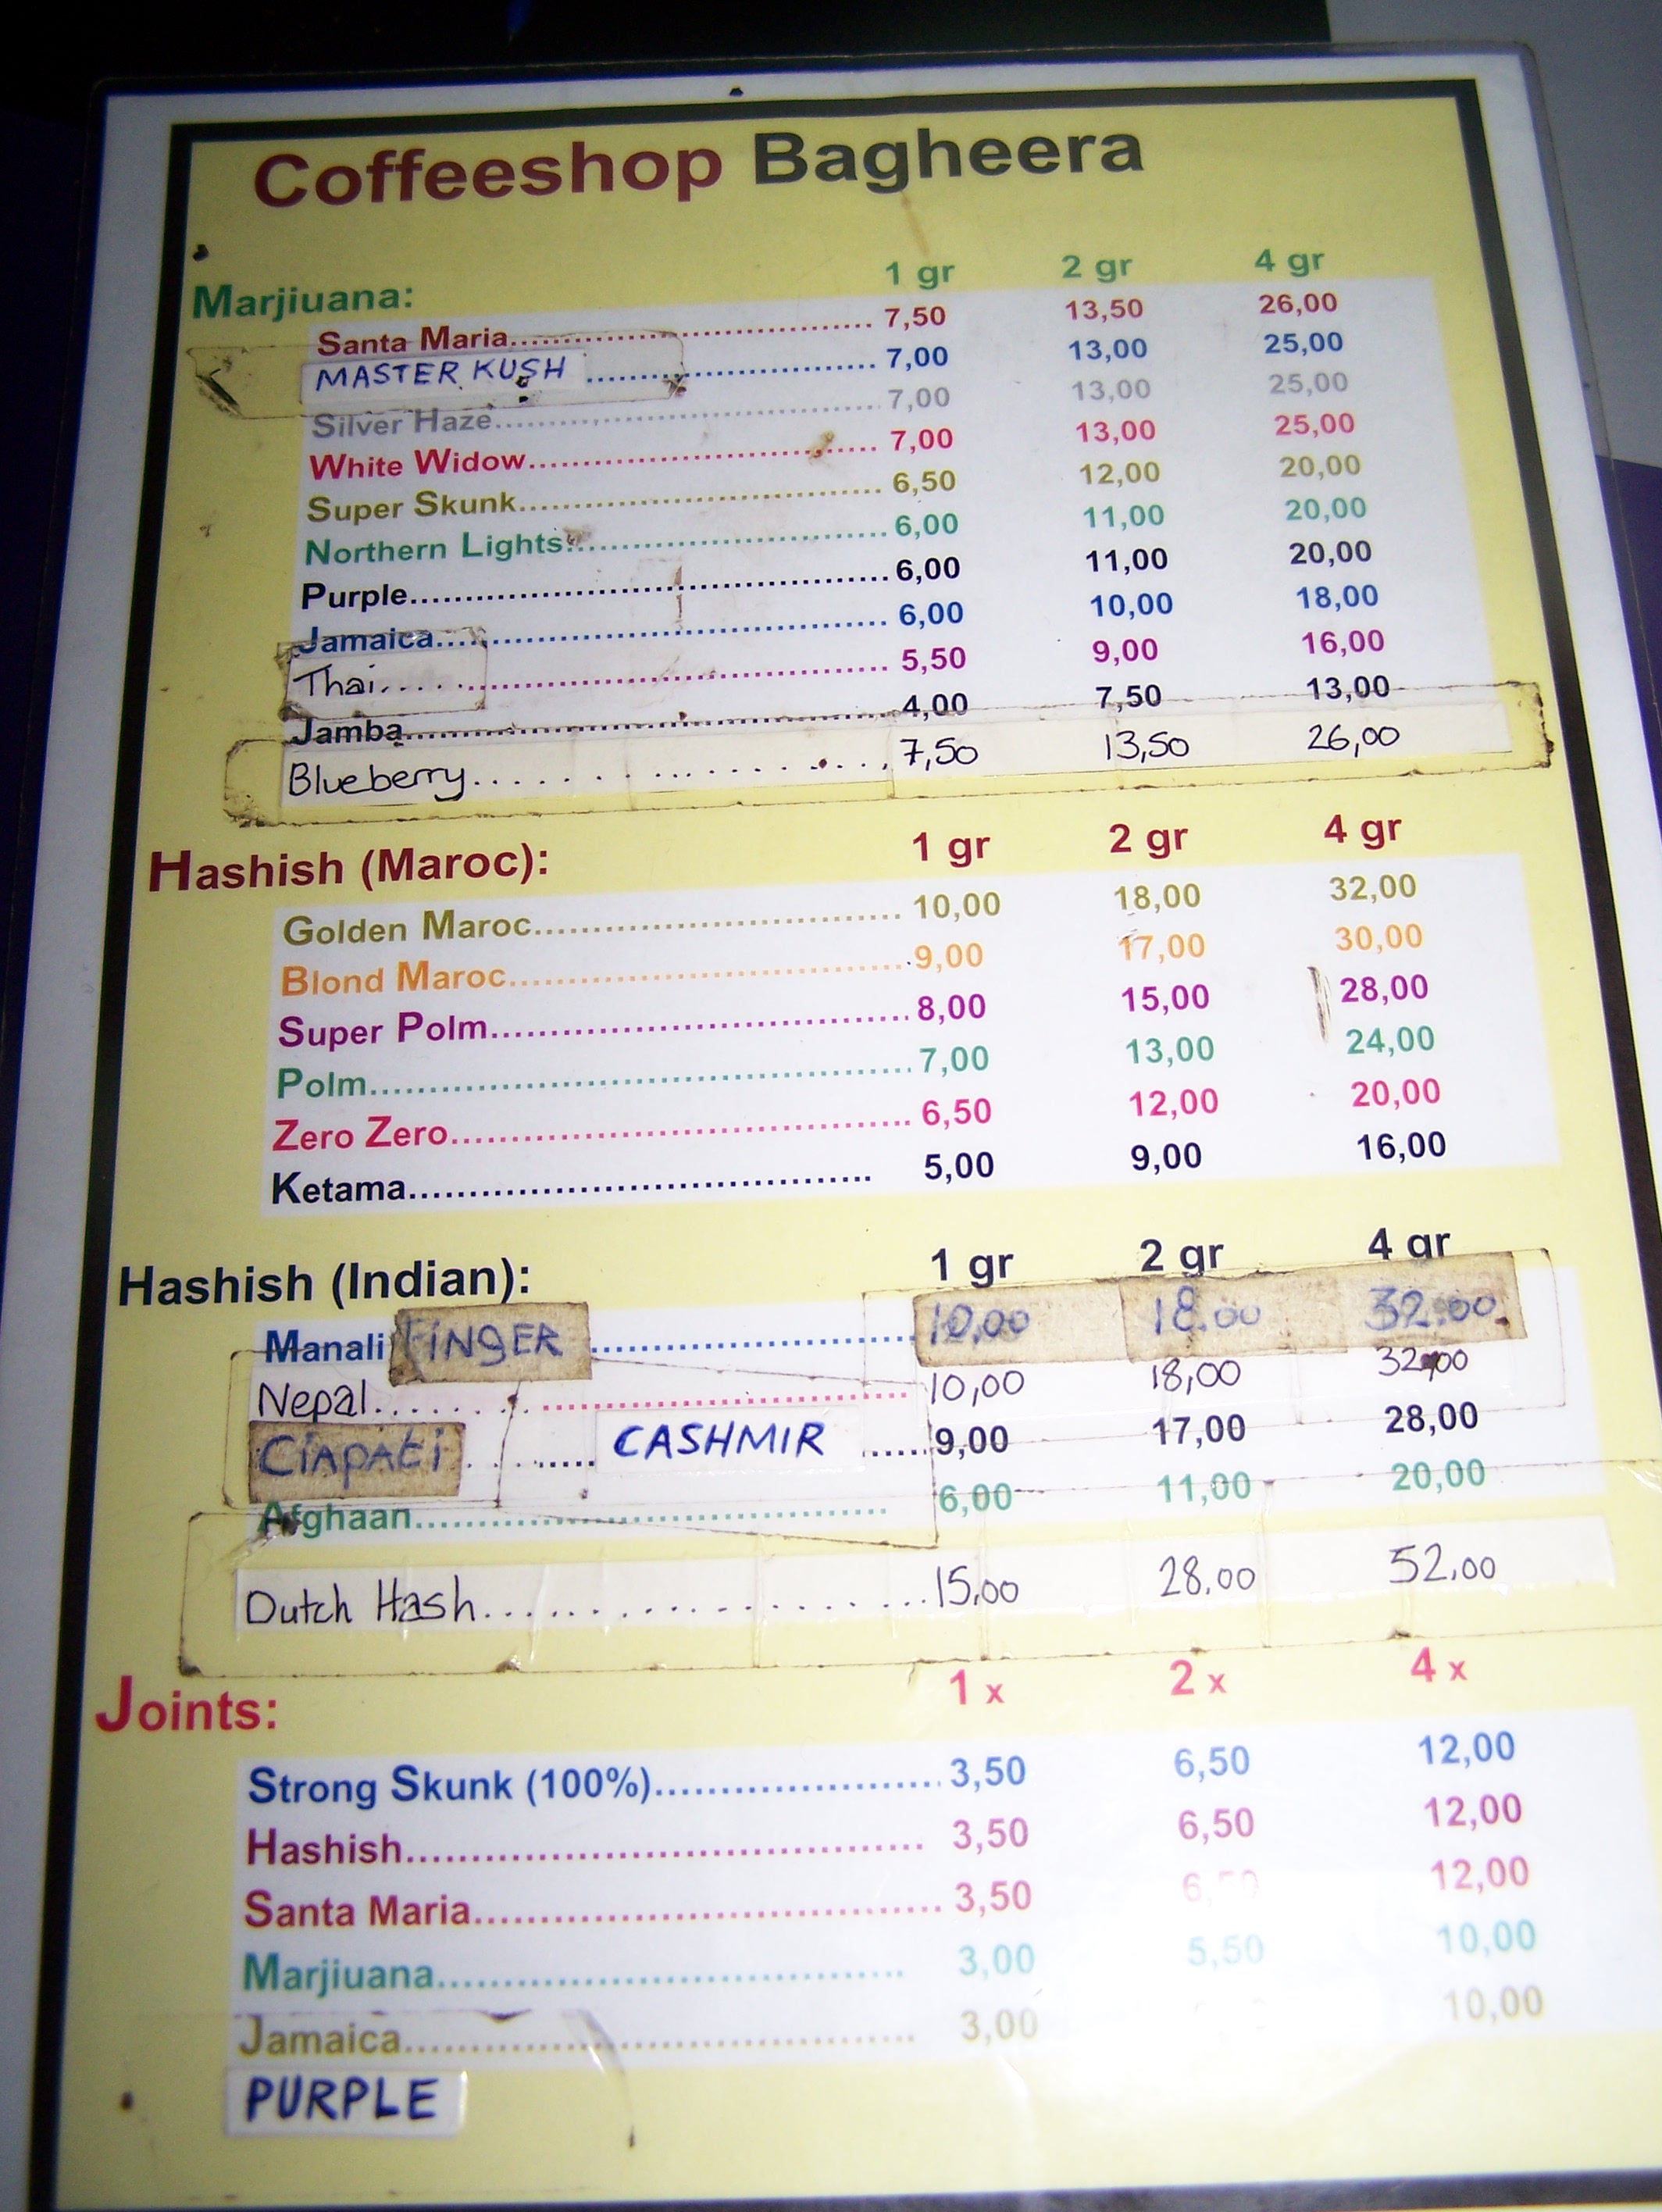 Coffeeshop Bagheera
Marjiuana: 1 gr 2 gr 4 gr
Santa Maria 7,50 13,50 26,00
MASTER KUSH 7,00 13,00 25,00
Silver Haze 7,00 13,00 25,00
White Widow 7,00 13,00 25,00
Super Skunk 6,50 12,00 20,00
Northern Lights 6,00 11,00 20,00
Purple 6,00 11,00 20,00
Jamaica 6,00 10,00 18,00
Thai 5,50 9,00 16,00
Jamba 4,00 7,50 13,00
Blueberry 7,50 13,50 26,00
Hashish (Maroc): 1 gr 2 gr 4 gr
Golden Maroc 10,00 18,00 32,00
Blond Maroc 9,00 17,00 30,00
Super Polm 8,00 15,00 28,00
Polm 7,00 13,00 24,00
Zero Zero 6,50 12,00 20,00
Ketama 5,00 9,00 16,00
Hashish (Indian): 1 gr 2 gr 4 gr
Manali FINGER 10,00 18.00 32.00
Nepal 10,00 18,00 32,00
CiAPATi CASHMIR 9,00 17,00 28,00
Afghaan 6,00 11,00 20,00
Dutch Hash 15,00 28.00 52.00
Joints: 1 x 2 x 4 x
Strong Skunk (100%) 3,50 6,50 12,00
Hashish 3,50 6,50 12,00
Santa Maria 3,50 6,50 12,00
Marjiuana 3,00 5,50 10,00
Jamaica 3,00 10,00
PURPLE